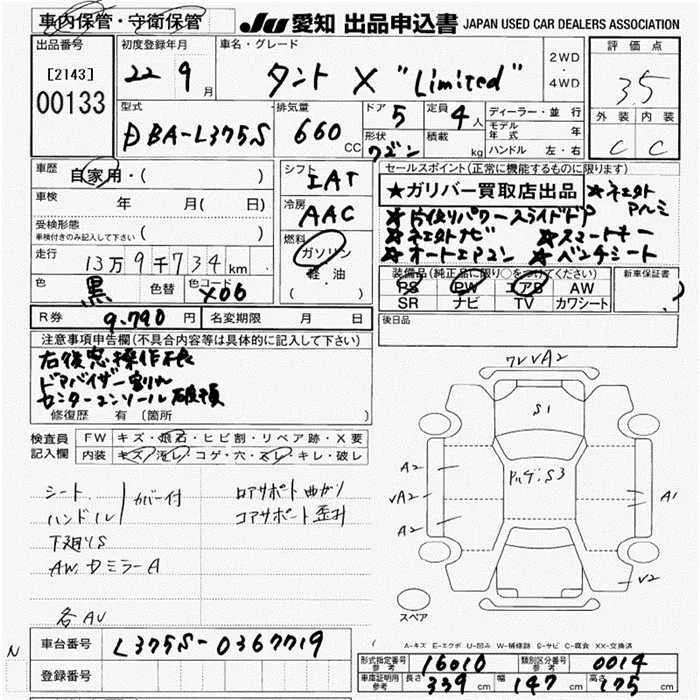 車内保管・守衛保管
JU 愛知 出品申込書 JAPAN USED CAR DEALERS ASSOCIATION
出品番号
[2143]
00133
初度登録年月
22 9月
車名・グレード
タント X "Limited"
2WD
・
4WD
評価点
3.5
外装 内装
C C
型式
DBA-L375S
排気量
660 CC
ドア 5
定員 4人
形状 ワゴン
積載 kg
ディーラー・並行
モデル年式 年
ハンドル 左・右
車歴
自家用・( )
車検
年 月( 日)
受検形態
車検付きのみ記入して下さい ( )
走行
13万9千734km
色 黒
色替
色コード X06
シフト
IAT
冷房
AAC
燃料
ガソリン
軽油
( )
セールスポイント(正常に機能するものに限ります)
★ガリバー買取店出品
★片側パワースライドドア
★オートエアコン
★スマートキー
★ベンチシート
アルミ
装備品(純正品に限り○をつけてください)
PS PW エアB AW
SR ナビ TV カワシート
新車保証書
R券 9,790 円
名変期限 月 日
後日品
注意事項申告欄(不具合内容等は具体的に記入して下さい)
右後窓操作不良
ドアバイザー割れ
センターコンソール破損
修復歴 有(箇所 )
検査員
記入欄
FW キズ・飛石・ヒビ割・リペア跡・X要
内装 キズ・汚レ・コゲ・穴・スレ・キレ・破レ
シート
ハンドル
カバー付
下廻りS
AW.ドミラーA
各AU
コアサポート歪み
A2
S1
S3
A2
UA2
A2
A1
U2
スペア
A-キズ E-エクボ U-凹み W-補修跡 S-サビ C-腐食 XX-交換済
N
車台番号 L375S-0367719
登録番号
形式指定番号 参考 16010
類別区分番号 参考 0014
車庫証明用 参考 長さ 339 cm 幅 147 cm 高さ 175 cm